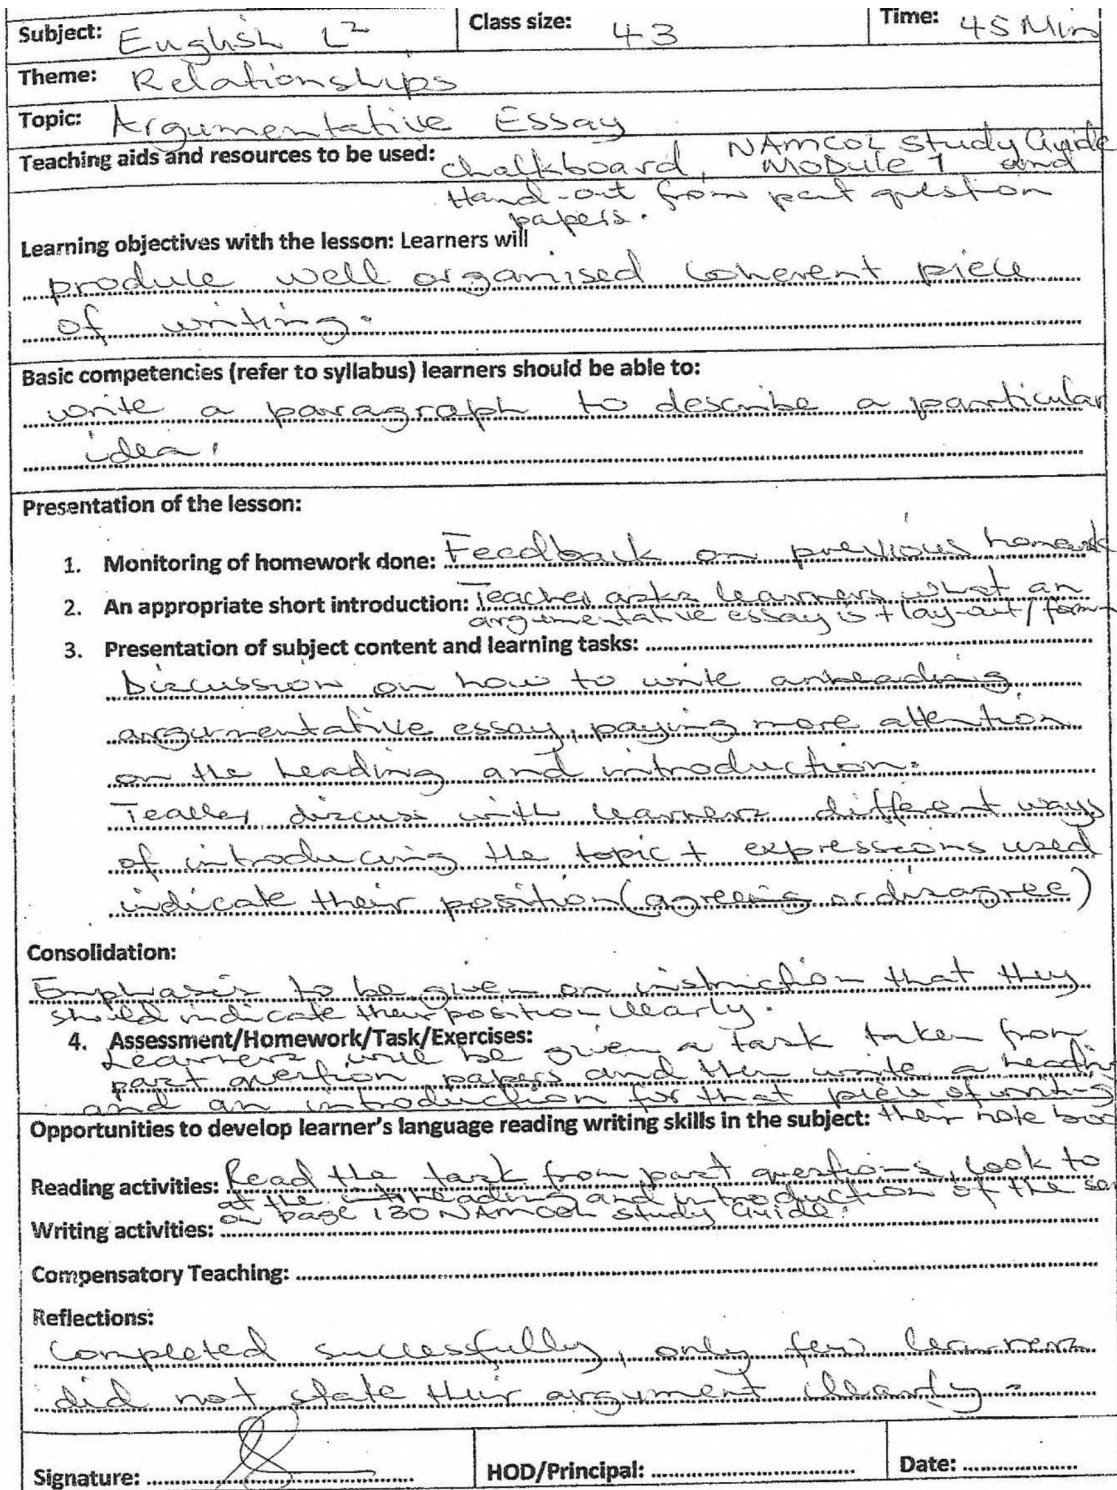 Subject: English L2 Class size: 43 Time: 45 Min
Theme: Relationships
Topic: Argumentative Essay
Teaching aids and resources to be used: chalkboard, NAMCOL Study Guide
Module 1 and
Hand-out from past question
papers.
Learning objectives with the lesson: Learners will
produce well organised coherent piece
of writing.
Basic competencies (refer to syllabus) learners should be able to:
write a paragraph to describe a particular
idea.
Presentation of the lesson:
1. Monitoring of homework done: Feedback on previous homework
2. An appropriate short introduction: Teacher asks learners what an
argumentative essay is + lay-out/form
3. Presentation of subject content and learning tasks:
Discussion on how to write an heading
argumentative essay, paying more attention
on the heading and introduction.
Teacher discuss with learners different ways
of introducing the topic + expressions used
indicate their position (agreeing or disagree)
Consolidation:
Emphasis to be given on instruction that they
should indicate their position clearly.
4. Assessment/Homework/Task/Exercises:
Learners will be given a task taken from
past question papers and then write a heading
and an introduction for that piece of writing
Opportunities to develop learner's language reading writing skills in the subject: their note boo
Reading activities: Read the task from past questions, look to
at the heading and introduction of the
on page 130 NAMCOL Study Guide.
Writing activities:
Compensatory Teaching:
Reflections:
Completed successfully, only few learners
did not state their argument clearly.
Signature: HOD/Principal: Date: